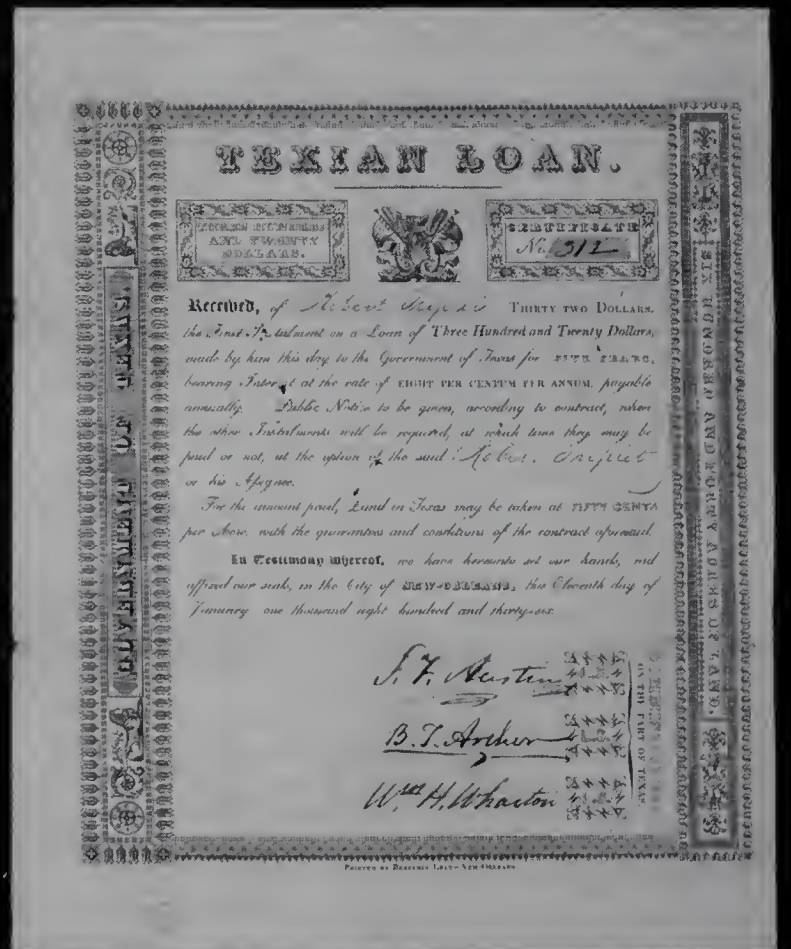 TEXIAN LOAN.
THREE HUNDRED
AND TWENTY
DOLLARS.
CERTIFICATE
No. 312
Received, of Robert THIRTY TWO DOLLARS,
the First Instalment on a Loan of Three Hundred and Twenty Dollars,
made by him this day to the Government of Texas for FIVE YEARS,
bearing Interest at the rate of EIGHT PER CENTUM PER ANNUM, payable
annually. Public Notice to be given, according to contract, when
the other Instalments will be required, at which time they may be
paid or not, at the option of the said
or his Assignee.
For the amount paid, Land in Texas may be taken at FIFTY CENTS
per Acre, with the guarantees and conditions of the contract aforesaid.
In Testimony whereof, we have hereunto set our hands, and
affixed our seals, in the City of NEW-ORLEANS, this Eleventh day of
January one thousand eight hundred and thirty-six.
S. F. Austin
B. T. Archer
Wm H. Wharton
ON THE PART OF TEXAS.
GOVERNMENT OF TEXAS
SIX HUNDRED AND FORTY ACRES OF LAND.
PRINTED BY BENJAMIN LEVY—NEW ORLEANS